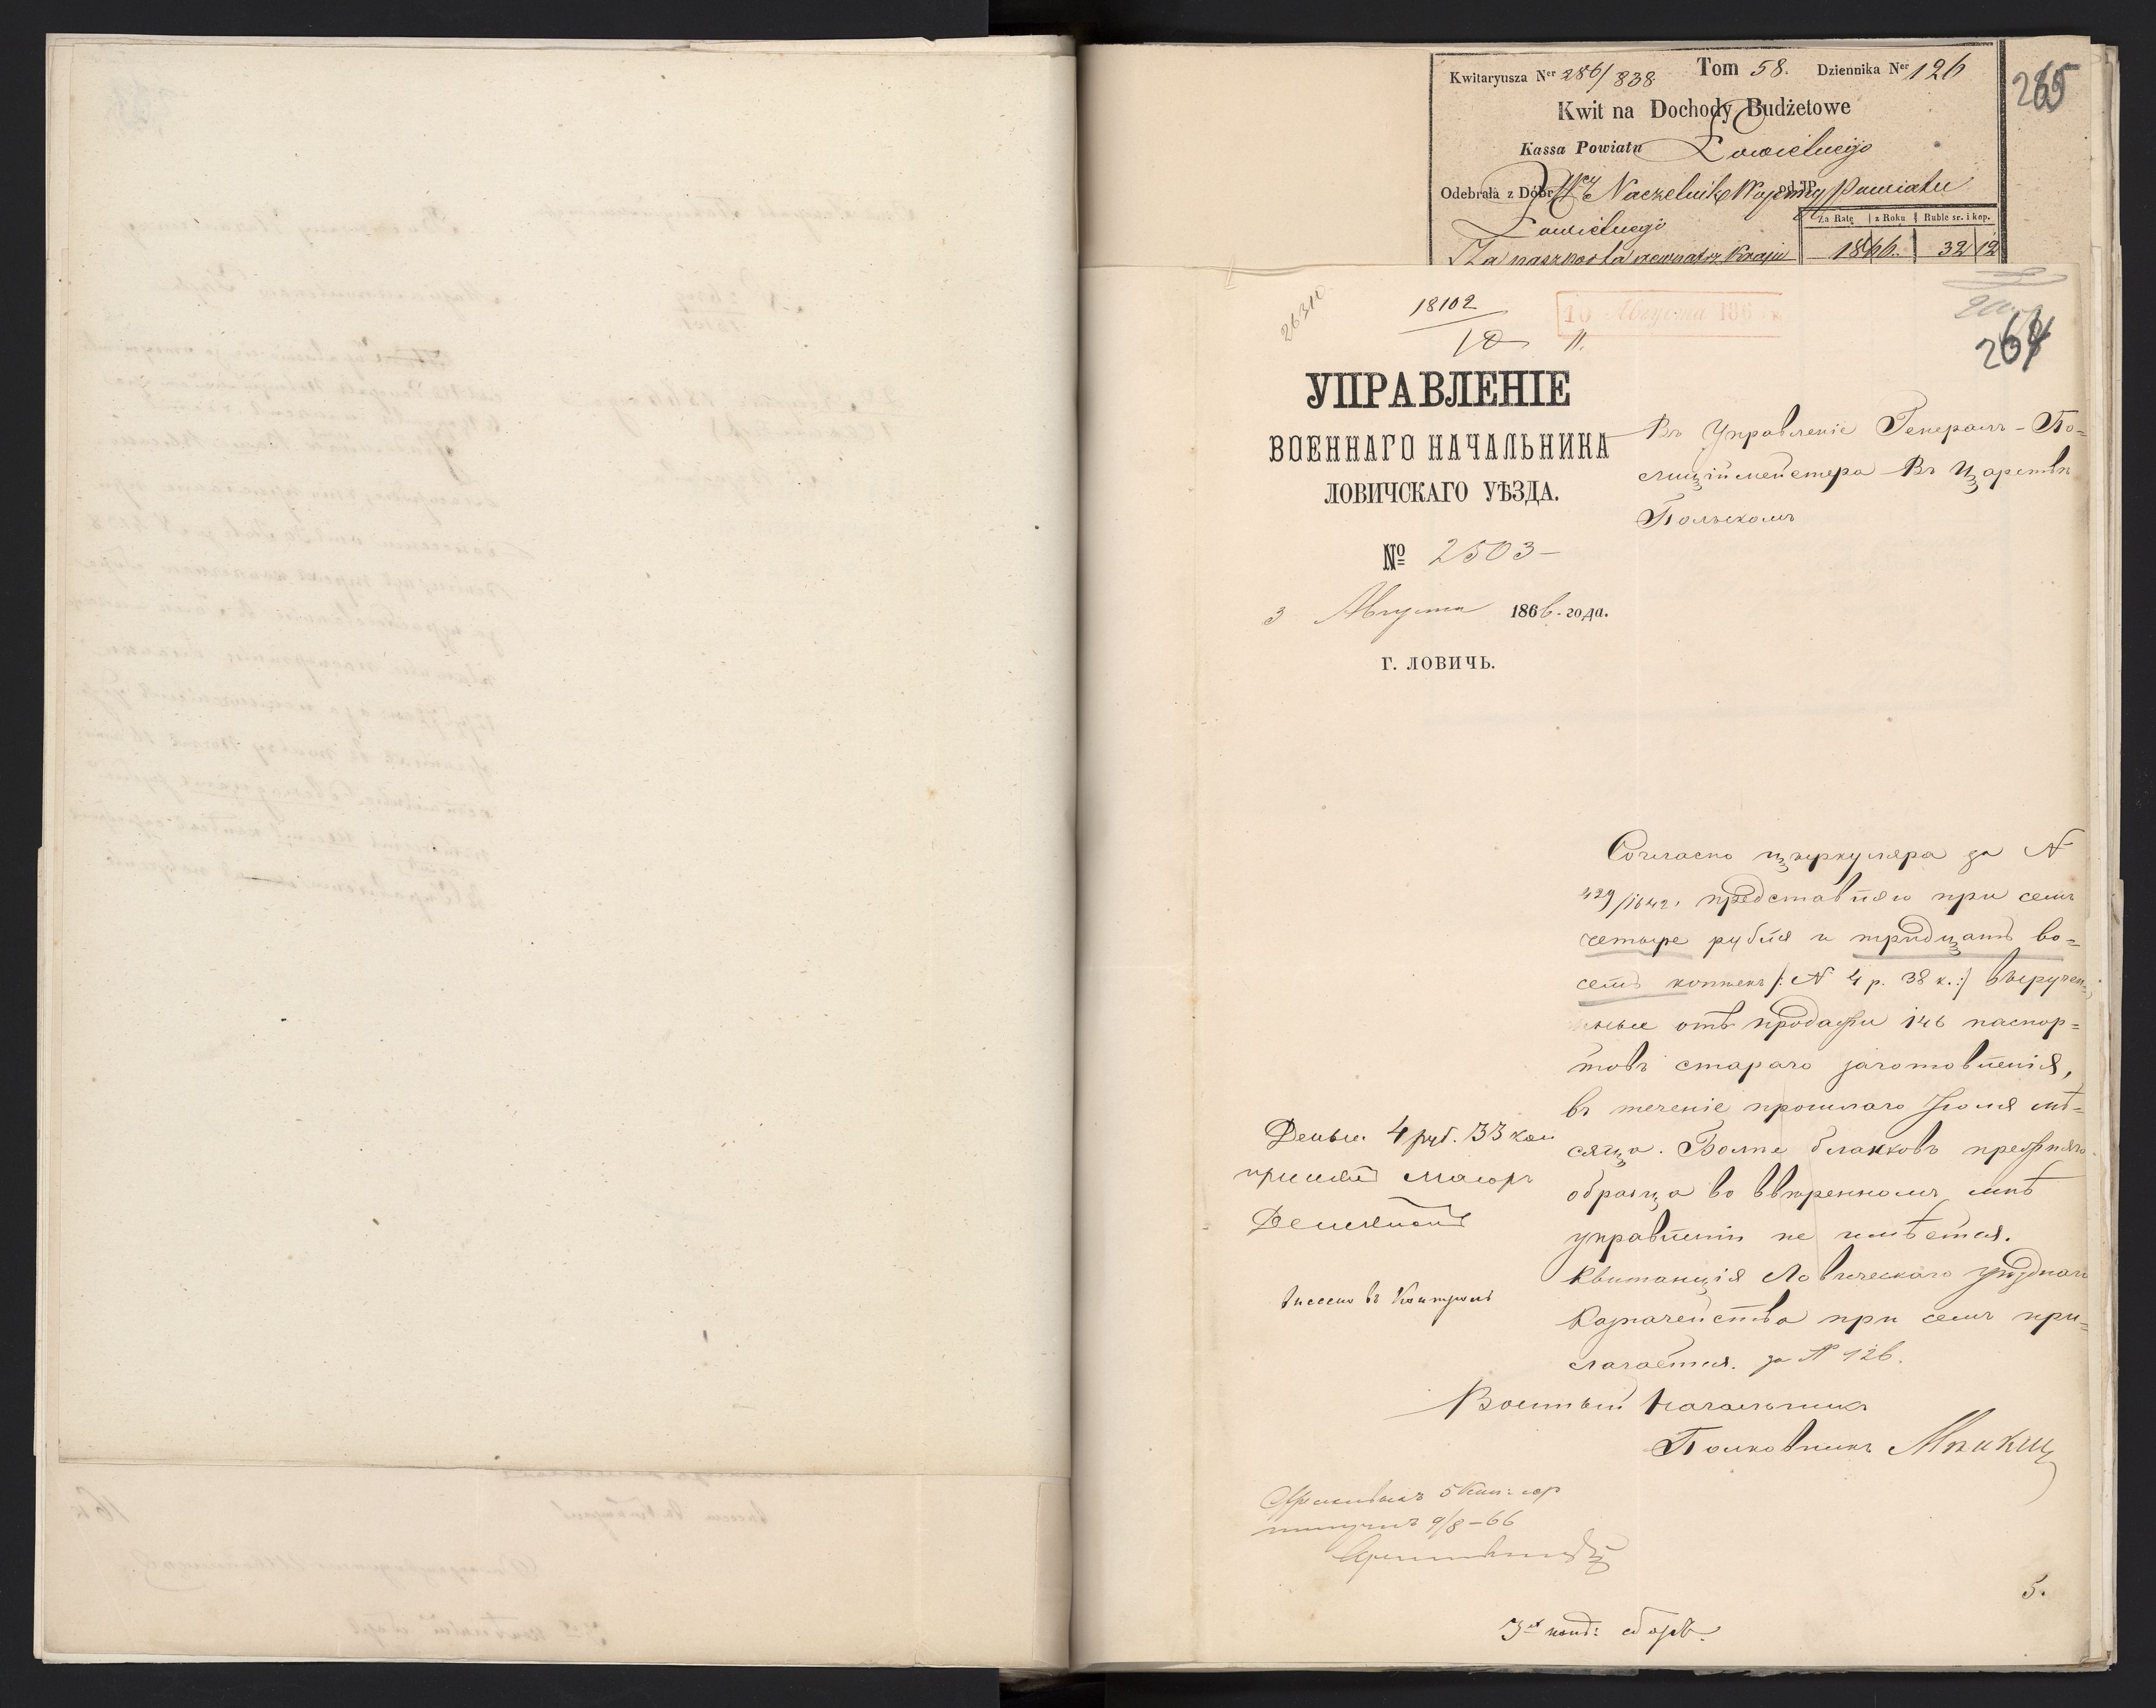 Kwitaryusza Ner 286/838 Tom 58. Dziennika Ner 126
265
Kwit na Dochody Budżetowe
Kassa Powiatu Łowickiego
Odebrała z Dóbr Naczelnik Wojenny Powiatu
Łowickiego
Za Ratę z Roku Ruble sr. i kop.
Za paszporta wewnątrz Kraju 1866. 32 12
26310
18102
10 Августа 186
264
УПРАВЛЕНІЕ
ВОЕННАГО НАЧАЛЬНИКА
ЛОВИЧСКАГО УѢЗДА.
№ 2503
3 Августа 1866. года.
Г. ЛОВИЧЬ.
Въ Управленіе Генералъ-По=
лиціймейстера Въ Царствѣ
Польскомъ
Согласно циркуляра за N
429/1642, представляю при семъ
четыре рубля и тридцать во=
семь копѣекъ /: N 4 р. 38 к. :/ выручен=
ные отъ продажи 146 паспор=
товъ стараго заготовленія,
въ теченіе прошлаго Іюля мѣ=
сяца. Болѣе бланковъ прежняго
образца во ввѣренномъ мнѣ
управленіи не имѣется.
Квитанція Ловичскаго уѣзднаго
Казначейства при семъ при=
лагается. за N 126.
Военный Начальникъ
Полковникъ
Деньги 4 руб. 33 коп
принялъ маіоръ
внесено въ Контроль
9/8-66
5.